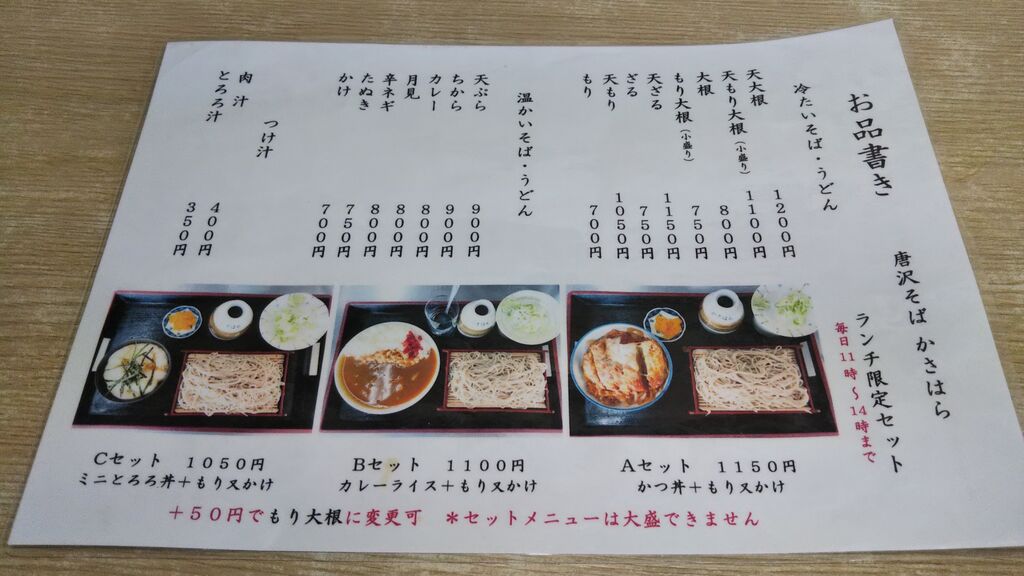 お品書き
唐沢そば かさはら
冷たいそば・うどん
天大根 1200円
天もり大根(小盛り) 1100円
大根 800円
もり大根(小盛り) 750円
天ざる 1150円
ざる 750円
天もり 1050円
もり 700円
温かいそば・うどん
天ぷら 900円
ちから 900円
カレー 800円
月見 800円
辛ネギ 800円
たぬき 750円
かけ 700円
つけ汁
肉汁 400円
とろろ汁 350円
ランチ限定セット
毎日11時〜14時まで
Aセット 1150円
かつ丼+もり又かけ
Bセット 1100円
カレーライス+もり又かけ
Cセット 1050円
ミニとろろ丼+もり又かけ
+50円でもり大根に変更可 *セットメニューは大盛できません